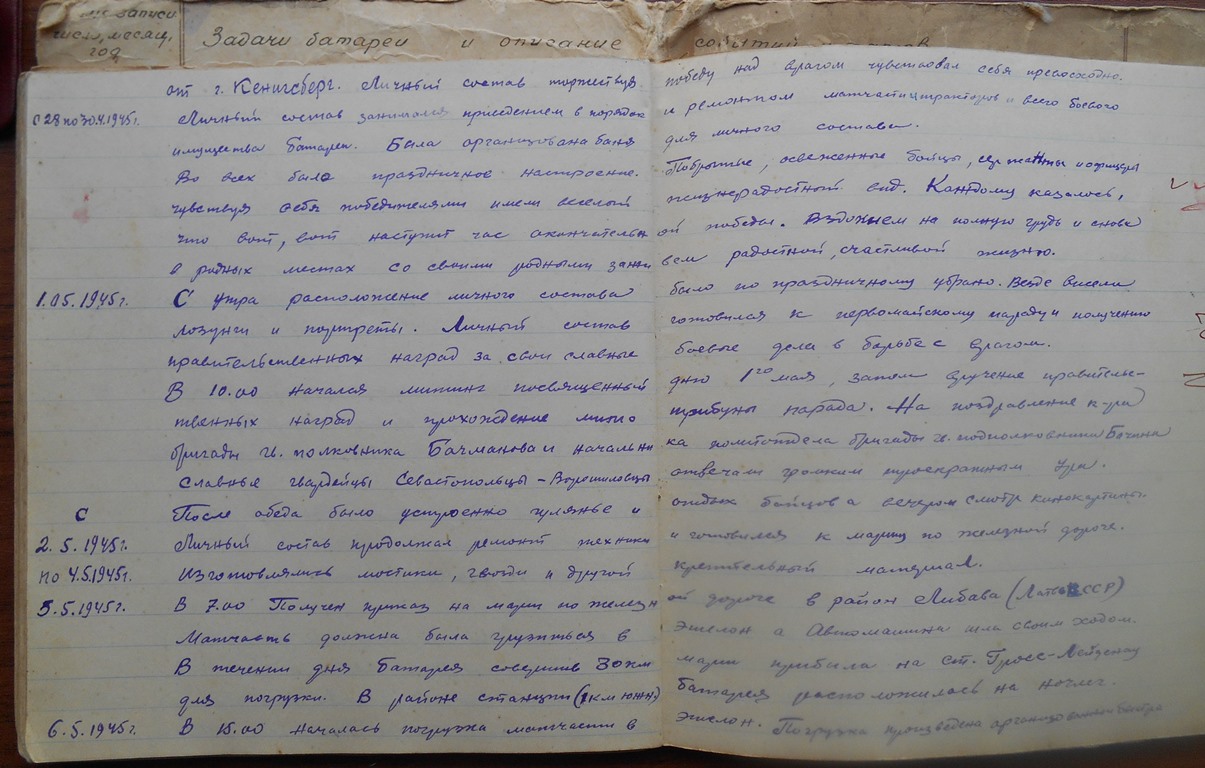 не записи
число, месяц, год
Задачи батареи и описание событий
от г. Кенигсберг. Личный состав торжествуя победу над врагом чувствовал себя превосходно.
с 28 по 30.4.1945г. Личный состав занимался приведением в порядок и ремонтом матчасти тракторов и всего боевого
имущества батареи. Была организована баня для личного состава.
Во всех было праздничное настроение. Побрытые, освеженные бойцы, сержанты и офицеры
чувствуя себя победителями имели веселый жизнерадостный вид. Каждому казалось,
что вот, вот наступит час окончательн ой победы. Вздохнем на полную грудь и снова
в родных местах со своими родными зажи вем радостной, счастливой жизнью.
1.05.1945г. С утра расположение личного состава было по праздничному убрано. Везде висели
лозунги и портреты. Личный состав готовился к первомайскому параду и получению
правительственных наград за свои славные боевые дела в борьбе с врагом.
В 10.00 начался митинг посвященный дню 1го мая, затем вручение правитель-
твенных наград и прохождение мимо трибуны парада. На поздравление к-ра
бригады гв. полковника Бачманова и начальни ка политотдела бригады гв. подполковника Бочина
славные гвардейцы Севастопольцы-Ворошиловцы отвечали громким троекратным Ура.
После обеда было устроенно гулянье и отдых бойцов а вечером смотр кинокартины.
С 2.5.1945г. Личный состав продолжая ремонт техники и готовился к маршу по железной дороге.
по 4.5.1945г. Изготовлялись мостики, гвозди и другой крепительный материал.
5.5.1945г. В 7.00 Получен приказ на марш по железн ой дороге в район Либава (Латв ССР)
Матчасть должна была грузиться в эшелон а Автомашина шла своим ходом.
В течении дня батарея совершив 30 км марш прибыла на ст. Гросс-
для погрузки. В районе станции (1 км южн) батарея расположилась на ночлег.
6.5.1945г. В 15.00 началась погрузка матчасти в эшелон. Погрузка произведена организованно быстро